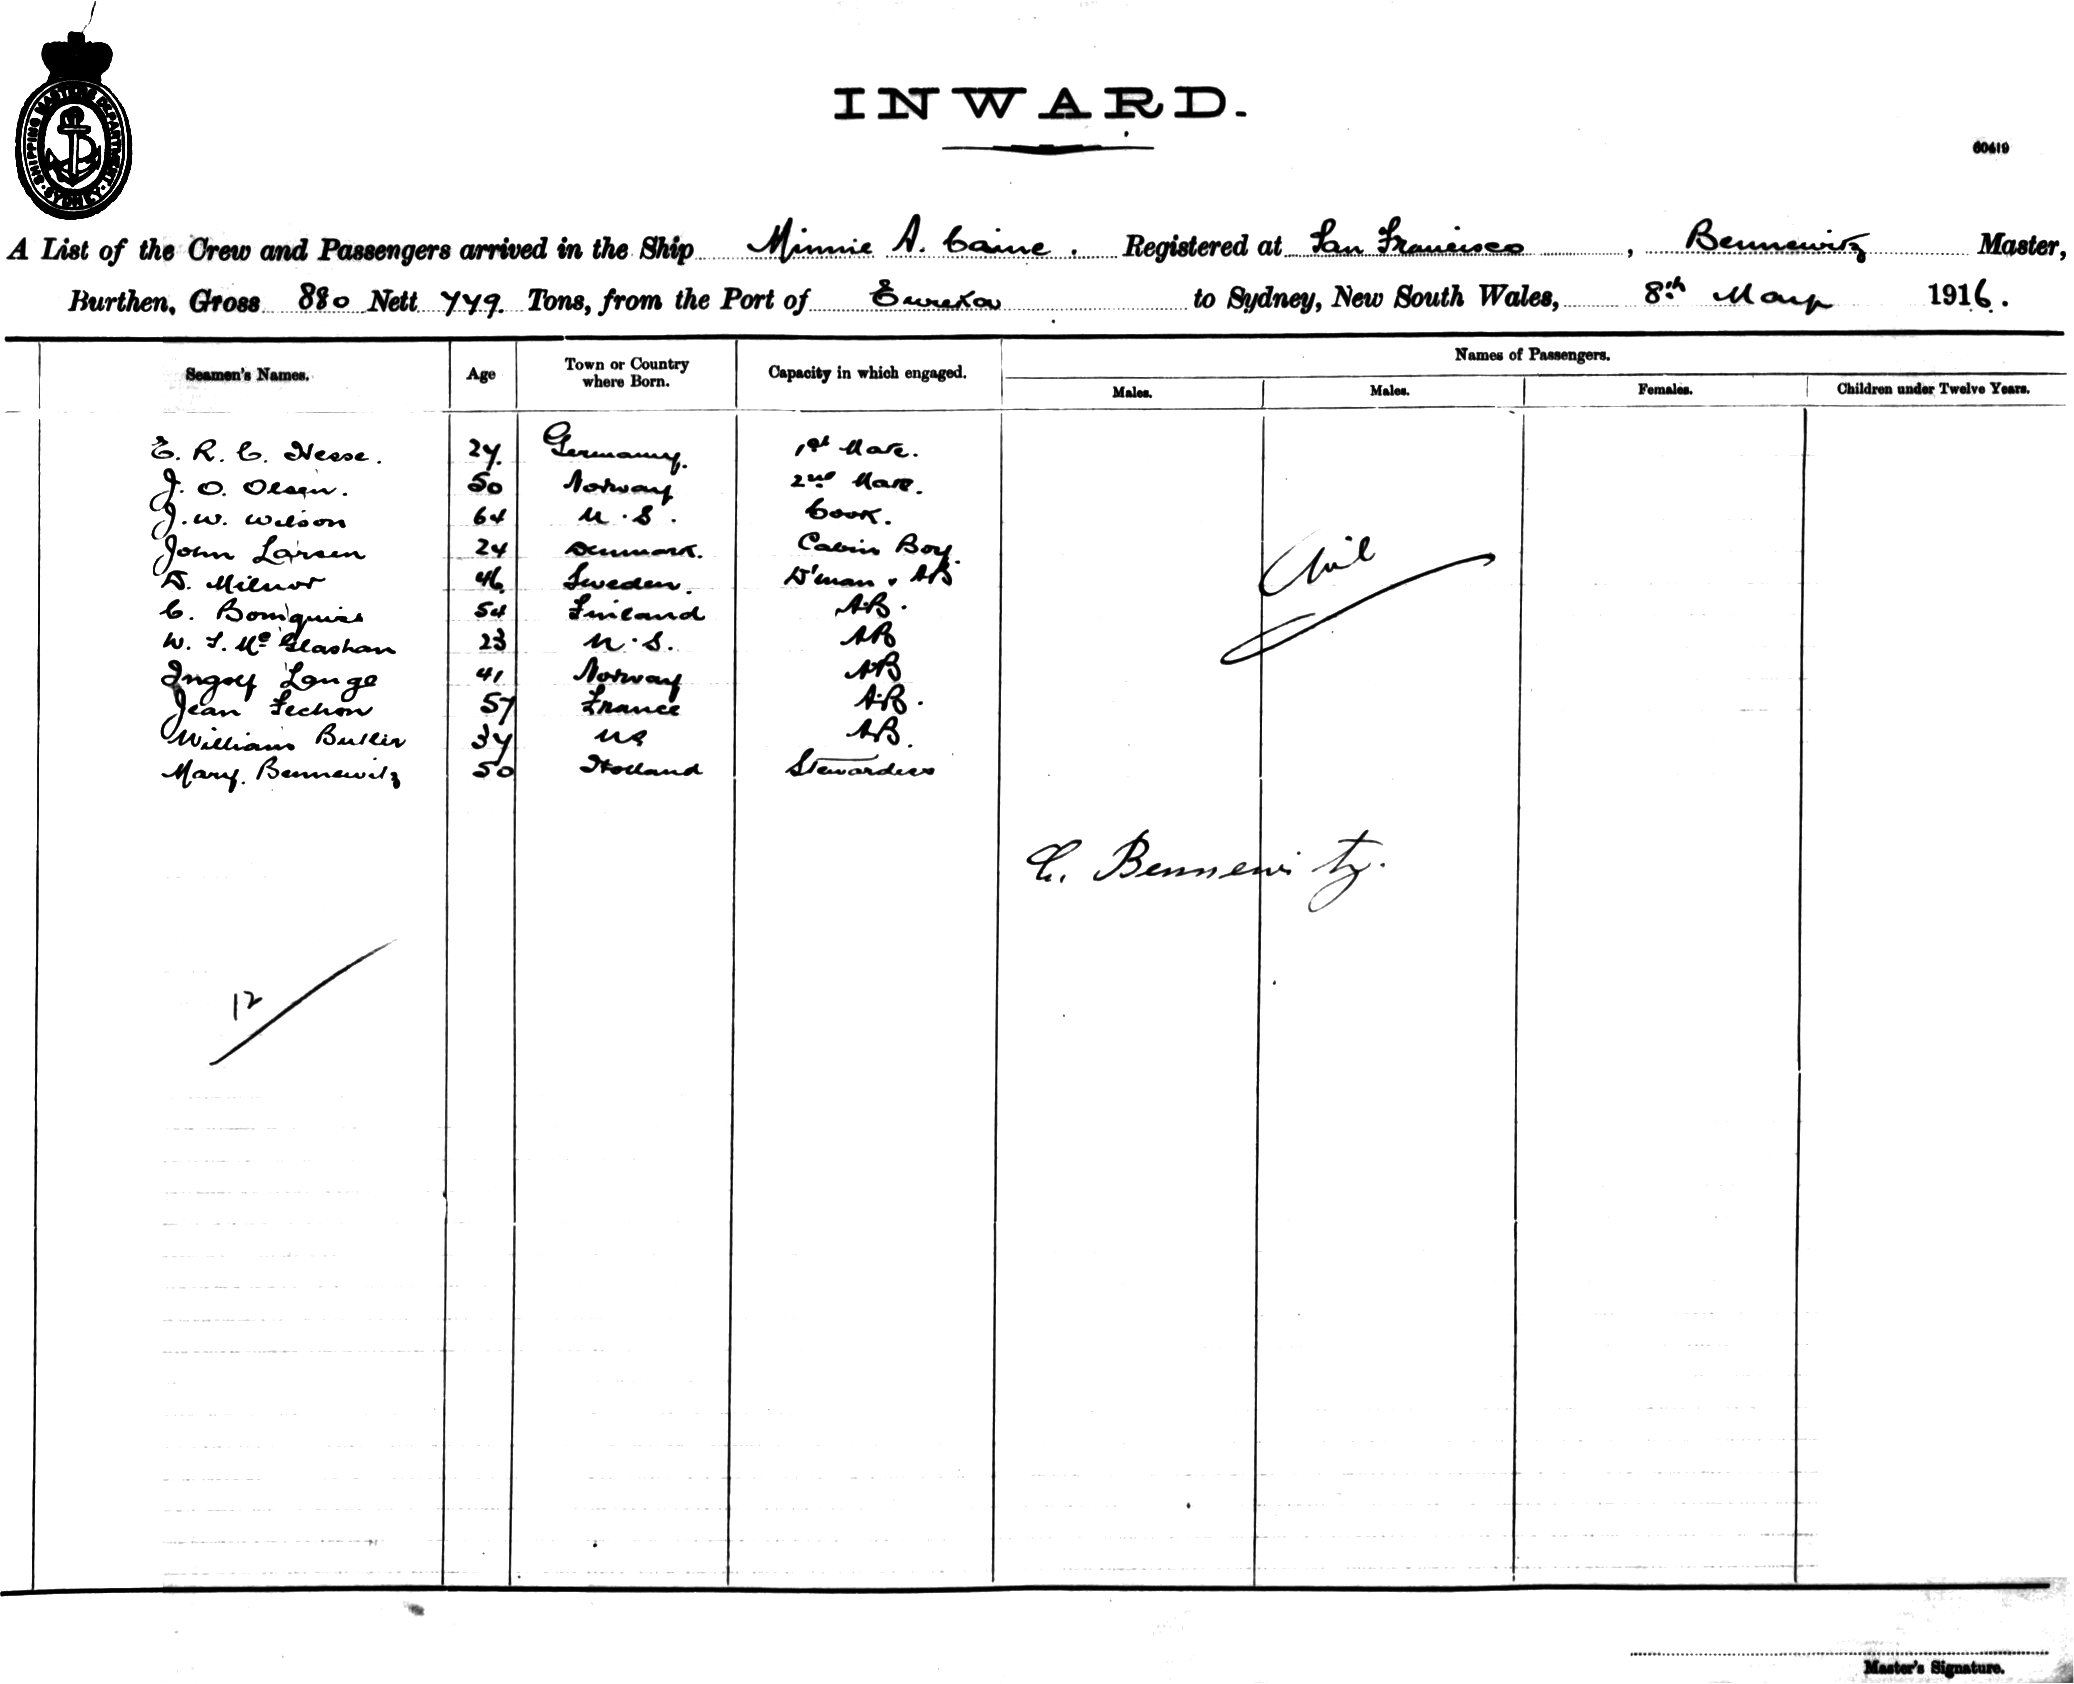 SHIPPING MASTERS DEPARTMENT · SYDNEY ·
INWARD.
60419
A List of the Crew and Passengers arrived in the Ship Minnie A. Caine. Registered at San Francisco, Bennewitz Master,
Burthen, Gross 880 Nett 779 Tons, from the Port of Eureka to Sydney, New South Wales, 8th May 1916.
Names of Passengers.
Seamen's Names. Age Town or Country where Born. Capacity in which engaged. Males. Males. Females. Children under Twelve Years.
E. R. C. Hesse. 27. Germany. 1st Mate.
J. O. Olsen. 50 Norway 2nd Mate.
J. W. Wilson 64 U.S. Cook.
John Larsen 24 Denmark. Cabin Boy.
D. Milnor 46 Sweden. D'man & AB
C. Bomquist 54 Finland A.B.
W. F. Mc Glashan 23 U.S. AB
Ingolf Lange 41 Norway AB
Jean Fechon 57 France A.B.
William Butler 37 US AB.
Mary. Bennewitz 50 Holland Stewardess
Nil
C. Bennewitz.
12
Master's Signature.